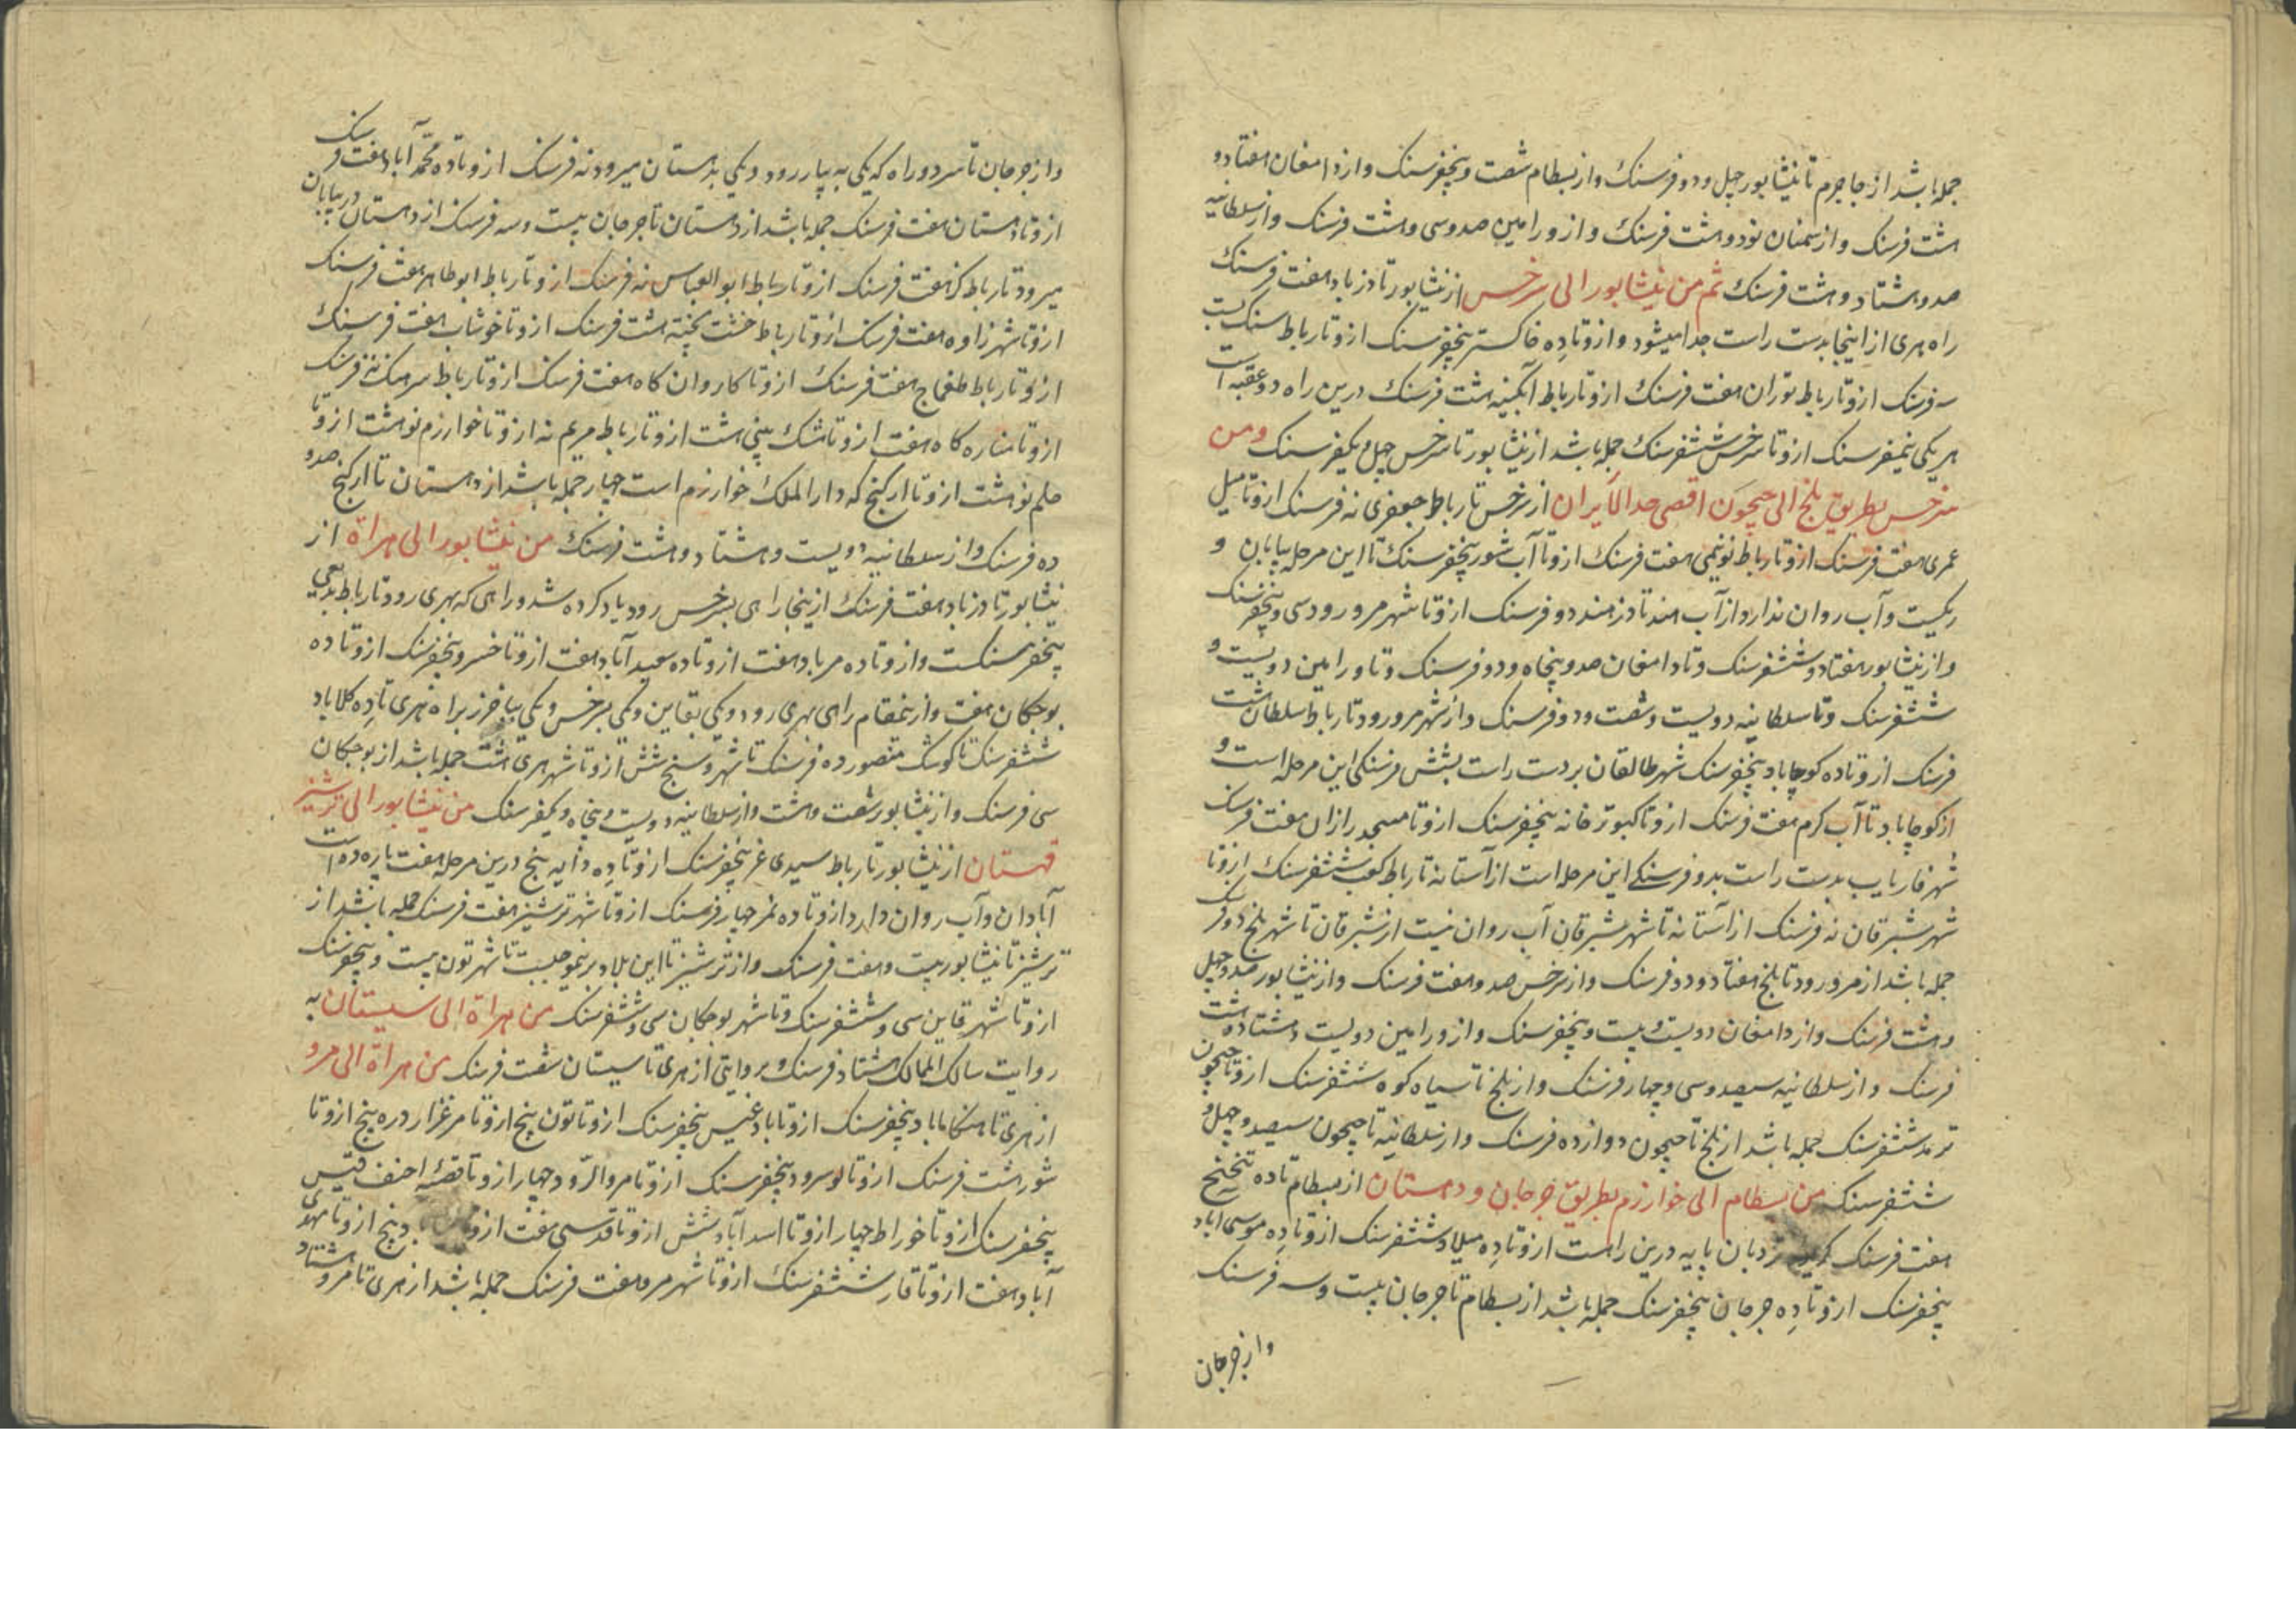 جمله باشد از جاجرم تا نیشابور چهل و دو فرسنک و از بسطام شصت و پنجفرسنک و از دامغان هفتاد و
هشت فرسنک و از سمنان نود و هشت فرسنک و از ورامین صد و سی و هشت فرسنک و از سلطانیه
صد و هشتاد و هشت فرسنک ثم من نیشابور الی سرخس از نیشابور تا دزباد هفت فرسنک
راه هری از اینجا بدست راست جدا میشود و ازو تا ده خاکستر پنجفرسنک ازو تا رباط سنک بست
سه فرسنک ازو تا رباط توران هفت فرسنک ازو تا رباط آبکینه هشت فرسنک درین راه دو عقبه است
هر یکی نیمفرسنک ازو تا سرخس ششفرسنک جمله باشد از نیشابور تا سرخس چهل و یکفرسنک و من
سرخس بطریق بلخ الی جیحون اقصی حد الایران از سرخس تا رباط جعفری نه فرسنک ازو تا میل
عمری هفت فرسنک ازو تا رباط نونیمی هفت فرسنک ازو تا آب شور پنجفرسنک تا این مرحله بیابان و
ریکیست و آب روان ندارد از آب مند تا دزمند دو فرسنک ازو تا شهر مرورود سی و پنجفرسنک
و از نیشابور هفتاد و ششفرسنک و تا دامغان صد و پنجاه و دو فرسنک و تا ورامین دویست و
ششفرسنک و تا سلطانیه دویست و شصت و دو فرسنک و از شهر مرورود تا رباط سلطان هشت
فرسنک ازو تا ده کوجاباد پنجفرسنک شهر طالقان بر دست راست بشش فرسنکی این مرحله است و
از کوجاباد تا آب کرم هفت فرسنک ازو تا کبوترخانه پنجفرسنک ازو تا مسجد رازان هفت فرسنک
شهر فاریاب بدست راست بدو فرسنکی این مرحله است از آستانه تا رباط کعب ششفرسنک ازو تا
شهر شبرقان نه فرسنک از آستانه تا شهر شبرقان آب روان نیست از شبرقان تا شهر بلخ دو فر
جمله باشد از مرورود تا بلخ هفتاد و دو فرسنک و از سرخس صد و هفت فرسنک و از نیشابور صد و چهل
و هشت فرسنک و از دامغان دویست و بیست و پنجفرسنک و از ورامین دویست و هشتاد و هشت
فرسنک و از سلطانیه سیصد و سی و چهار فرسنک و از بلخ تا سیاه کوه ششفرسنک ازو تا جیحون
ترمد ششفرسنک جمله باشد از بلخ تا جیحون دوازده فرسنک و از سلطانیه تا جیحون سیصد و چهل و
ششفرسنک من بسطام الی خوارزم بطریق جرجان و دهستان از بسطام تا ده
هفت فرسنک نردبان پایه درین راهست ازو تا ده میلاد ششفرسنک ازو تا ده موسی اباد
پنجفرسنک ازو تا ده جرجان پنجفرسنک جمله باشد از بسطام تا جرجان بیست و سه فرسنک
و از جرجان
و از جرجان تا سر دو راه که یکی به رود و یکی بدهستان میرود نه فرسنک ازو تا ده محمدآباد هفت فرسنک
ازو تا دهستان هفت فرسنک جمله باشد از دهستان تا جرجان بیست و سه فرسنک از دهستان در بیابان
میرود تا رباط کز هفت فرسنک ازو تا رباط ابوالعباس نه فرسنک ازو تا رباط ابو طاهر هفت فرسنک
ازو تا شهر زاوه هفت فرسنک ازو تا رباط خشت پخته هشت فرسنک ازو تا خوشاب هفت فرسنک
ازو تا رباط طغماج هفت فرسنک ازو تا کاروان کاه هفت فرسنک ازو تا رباط سرهنک نه فرسنک
ازو تا مناره کاه هفت ازو تا مشک بینی هشت ازو تا رباط مریم نه ازو تا خوارزم نو هشت ازو تا
حلم نو هشت ازو تا ارکنج که دارالملک خوارزم است چهار جمله باشد از دهستان تا ارکنج صد و
ده فرسنک و از سلطانیه دویست و هشتاد و هشت فرسنک من نیشابور الی هراة از
نیشابور تا دزباد هفت فرسنک ازینجا راهی بسرخس رود یاد کرده شد و راهی که بهری رود تا رباط بدیعی
پنجفرسنکست و ازو تا ده مرباد هفت ازو تا ده سعیدآباد هفت ازو تا خسرو پنجفرسنک ازو تا ده
بوجکان هفت و ازینمقام راهی بهری رود و یکی بقاین و یکی بسرخس و یکی بباخرز براه هری تا ده کلاباد
ششفرسنک تا کوشک منصور ده فرسنک تا شهر فوسنج شش ازو تا شهر هری هشت جمله باشد از بوجکان
سی فرسنک و از نیشابور شصت و هشت و از سلطانیه دویست و پنجاه و یکفرسنک من نیشابور الی ترشیز
قهستان از نیشابور تا رباط سیدی غر پنجفرسنک ازو تا ده دایه پنج درین مرحله هفت پاره ده است
آبادان و آب روان دارد ازو تا ده نمر چهار فرسنک ازو تا شهر ترشیز هفت فرسنک جمله باشد از
ترشیز تا نیشابور بیست و هفت فرسنک و از ترشیز تا این بلاد برینموجبست تا شهر تون بیست و پنجفرسنک
ازو تا شهر قاین سی و ششفرسنک و تا شهر بوجکان سی و ششفرسنک من هراة الی سیستان به
روایت مسالک الممالک هشتاد فرسنک و بروایتی از هری تا سیستان شصت فرسنک من هراة الی مرو
از هری تا هنکاماباد پنجفرسنک ازو تا بادغیس پنجفرسنک ازو تا تون پنج ازو تا مرغزار دره پنج ازو تا
شور هشت فرسنک ازو تا لوسرود پنجفرسنک ازو تا مروالرود چهار ازو تا قصر احنف قیس
پنجفرسنک ازو تا خوراط چهار ازو تا اسدآباد شش ازو تا قدسی هفت ازو د پنج ازو تا مهدی
آباد هفت ازو تا فاز ششفرسنک ازو تا شهر مرو هفت فرسنک جمله باشد از هری تا مرو هشتاد